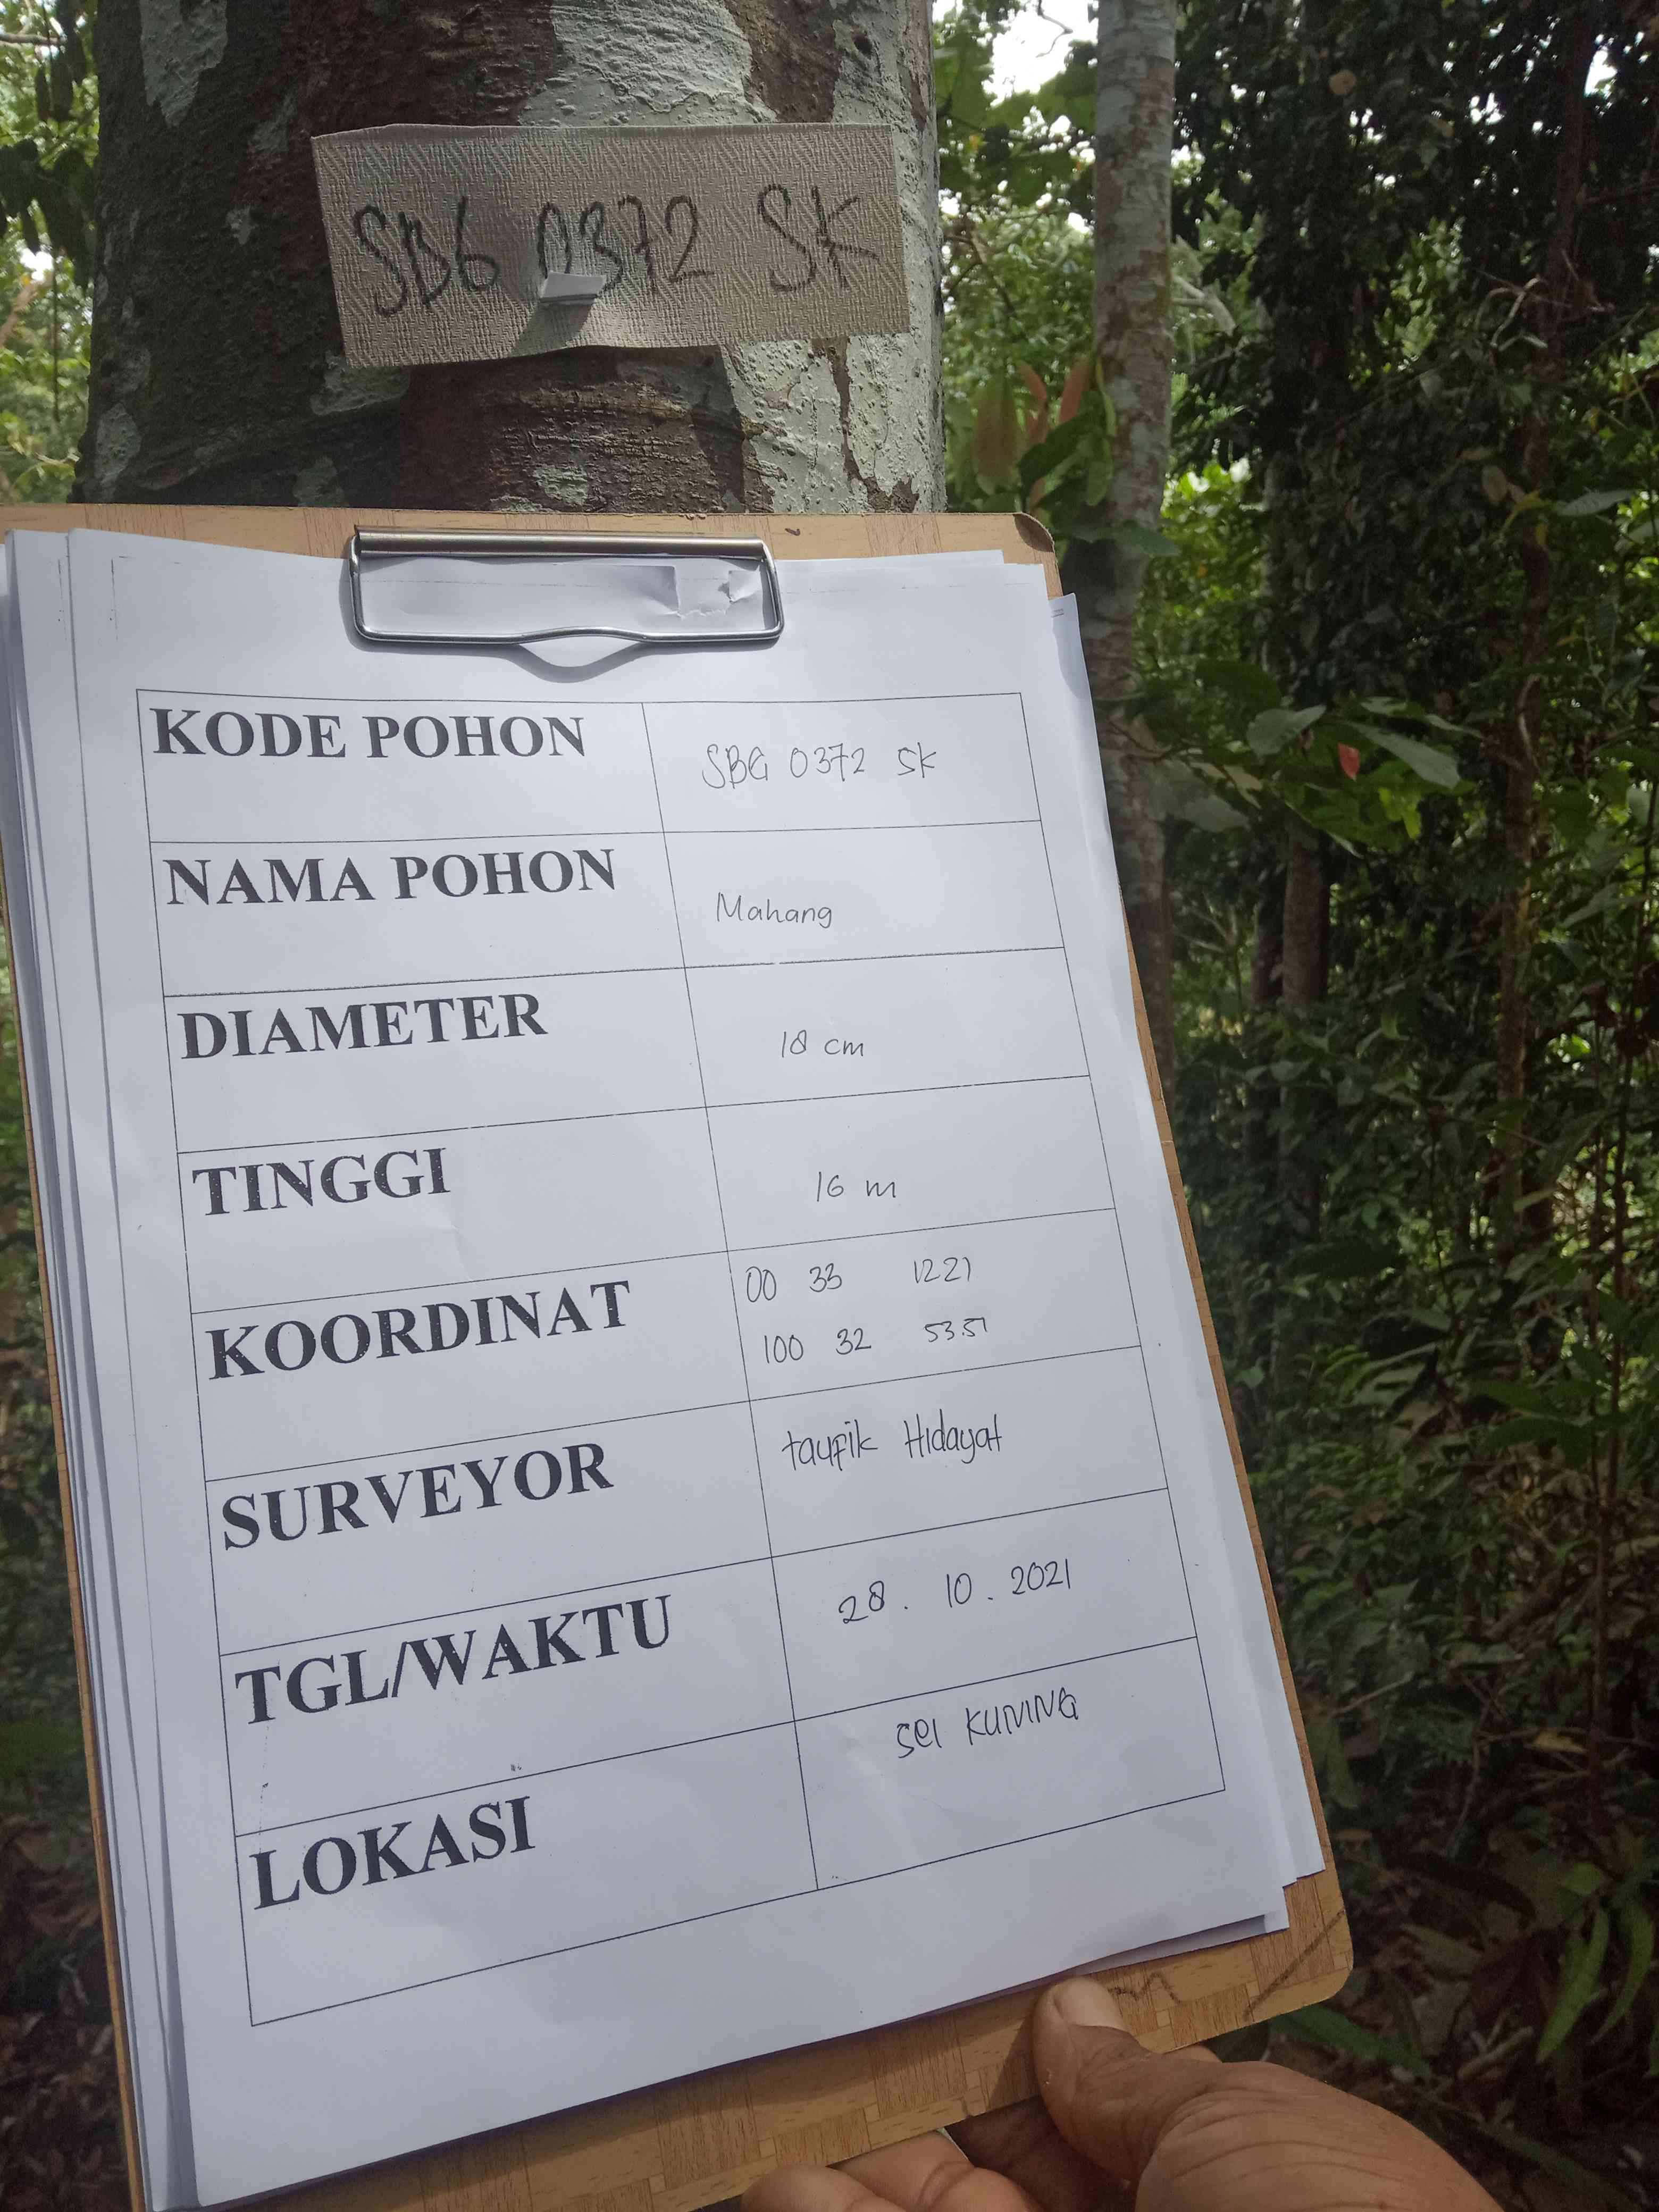 SBG 0372 SK
KODE POHON
SBG 0372 SK
NAMA POHON
Mahang
DIAMETER
18 cm
TINGGI
16 m
KOORDINAT
00 33 1221
100 32 53.51
SURVEYOR
taufik Hidayat
TGL/WAKTU
28. 10. 2021
LOKASI
SEI KUNING